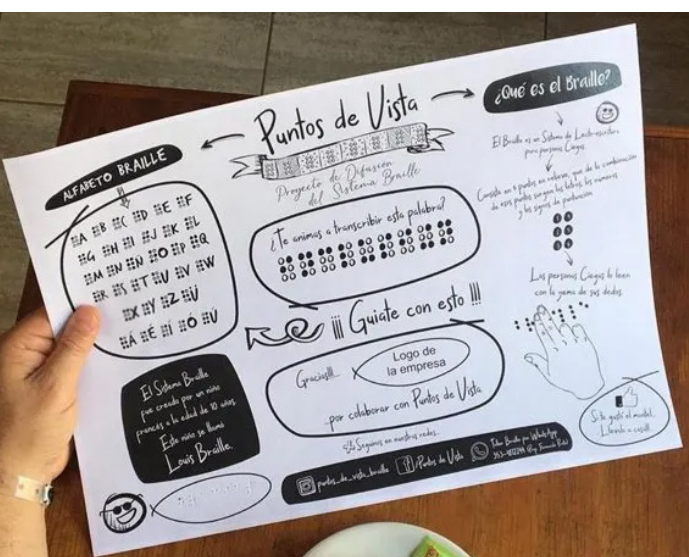 Puntos de Vista
Proyecto de Difusión
del Sistema Braille
ALFABETO BRAILLE
A B C D E F
G H I J K L
M N Ñ O P Q
R S T U V W
X Y Z Ü
Á É Í Ó Ú
¿Te animas a transcribir esta palabra?
¡¡¡ Guiate con esto !!!
Gracias!!!
Logo de
la empresa
...por colaborar con Puntos de Vista
Seguinos en nuestras redes...
puntos_de_vista_braille
/Puntos de Vista
Taller Braille por WhatsApp
El Sistema Braille
fue creado por un niño
francés a la edad de 10 años.
Este niño se llamó
Louis Braille.
¿Qué es el Braille?
El Braille es un Sistema de Lecto-escritura
para personas Ciegas.
Consiste en 6 puntos en relieve, que de la combinación
de esos puntos surgen las letras, los números
y los signos de puntuación
Las personas Ciegas lo leen
con la yema de sus dedos.
Si te gustó el mantel...
Llevalo a casa!!!